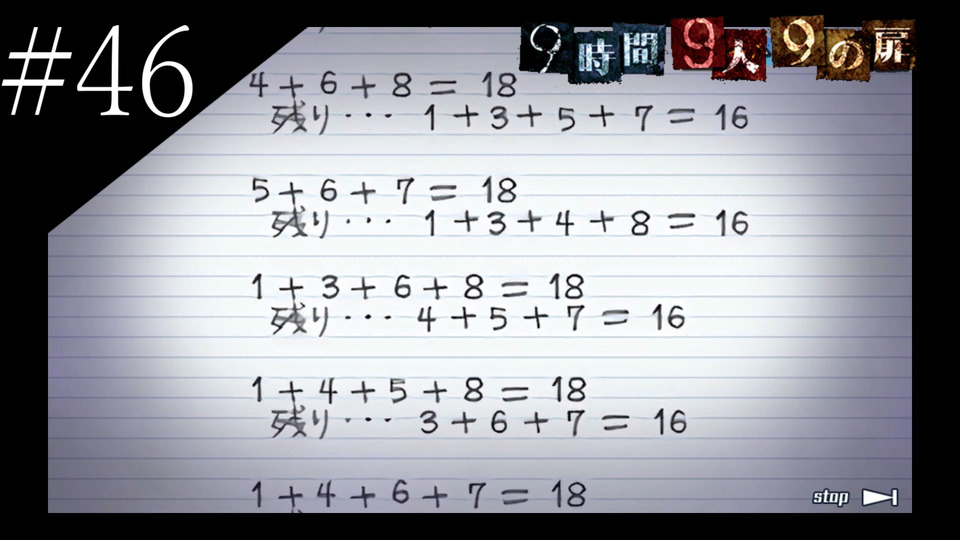 #46
9時間9人9の扉
4 + 6 + 8 = 18
残り・・・ 1 + 3 + 5 + 7 = 16
5 + 6 + 7 = 18
残り・・・ 1 + 3 + 4 + 8 = 16
1 + 3 + 6 + 8 = 18
残り・・・ 4 + 5 + 7 = 16
1 + 4 + 5 + 8 = 18
残り・・・ 3 + 6 + 7 = 16
1 + 4 + 6 + 7 = 18
stop